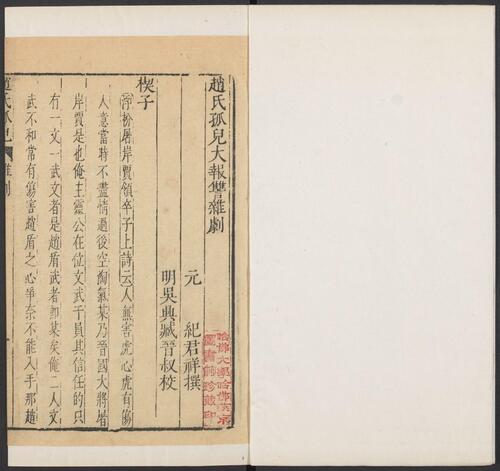 趙氏孤兒大報讐雜劇
元　紀君祥撰
明吳興臧晉叔校
楔子
淨扮屠岸賈領卒子上詩云人無害虎心虎有傷
人意當時不盡情過後空淘氣某乃晉國大將屠
岸賈是也俺主靈公在位文武千員其信任的只
有一文一武文者是趙盾武者卽某矣俺二人文
武不和常有傷害趙盾之心爭奈不能入手那趙
趙氏孤兒 雜劇
哈佛大學哈佛燕京
圖書館珍藏印